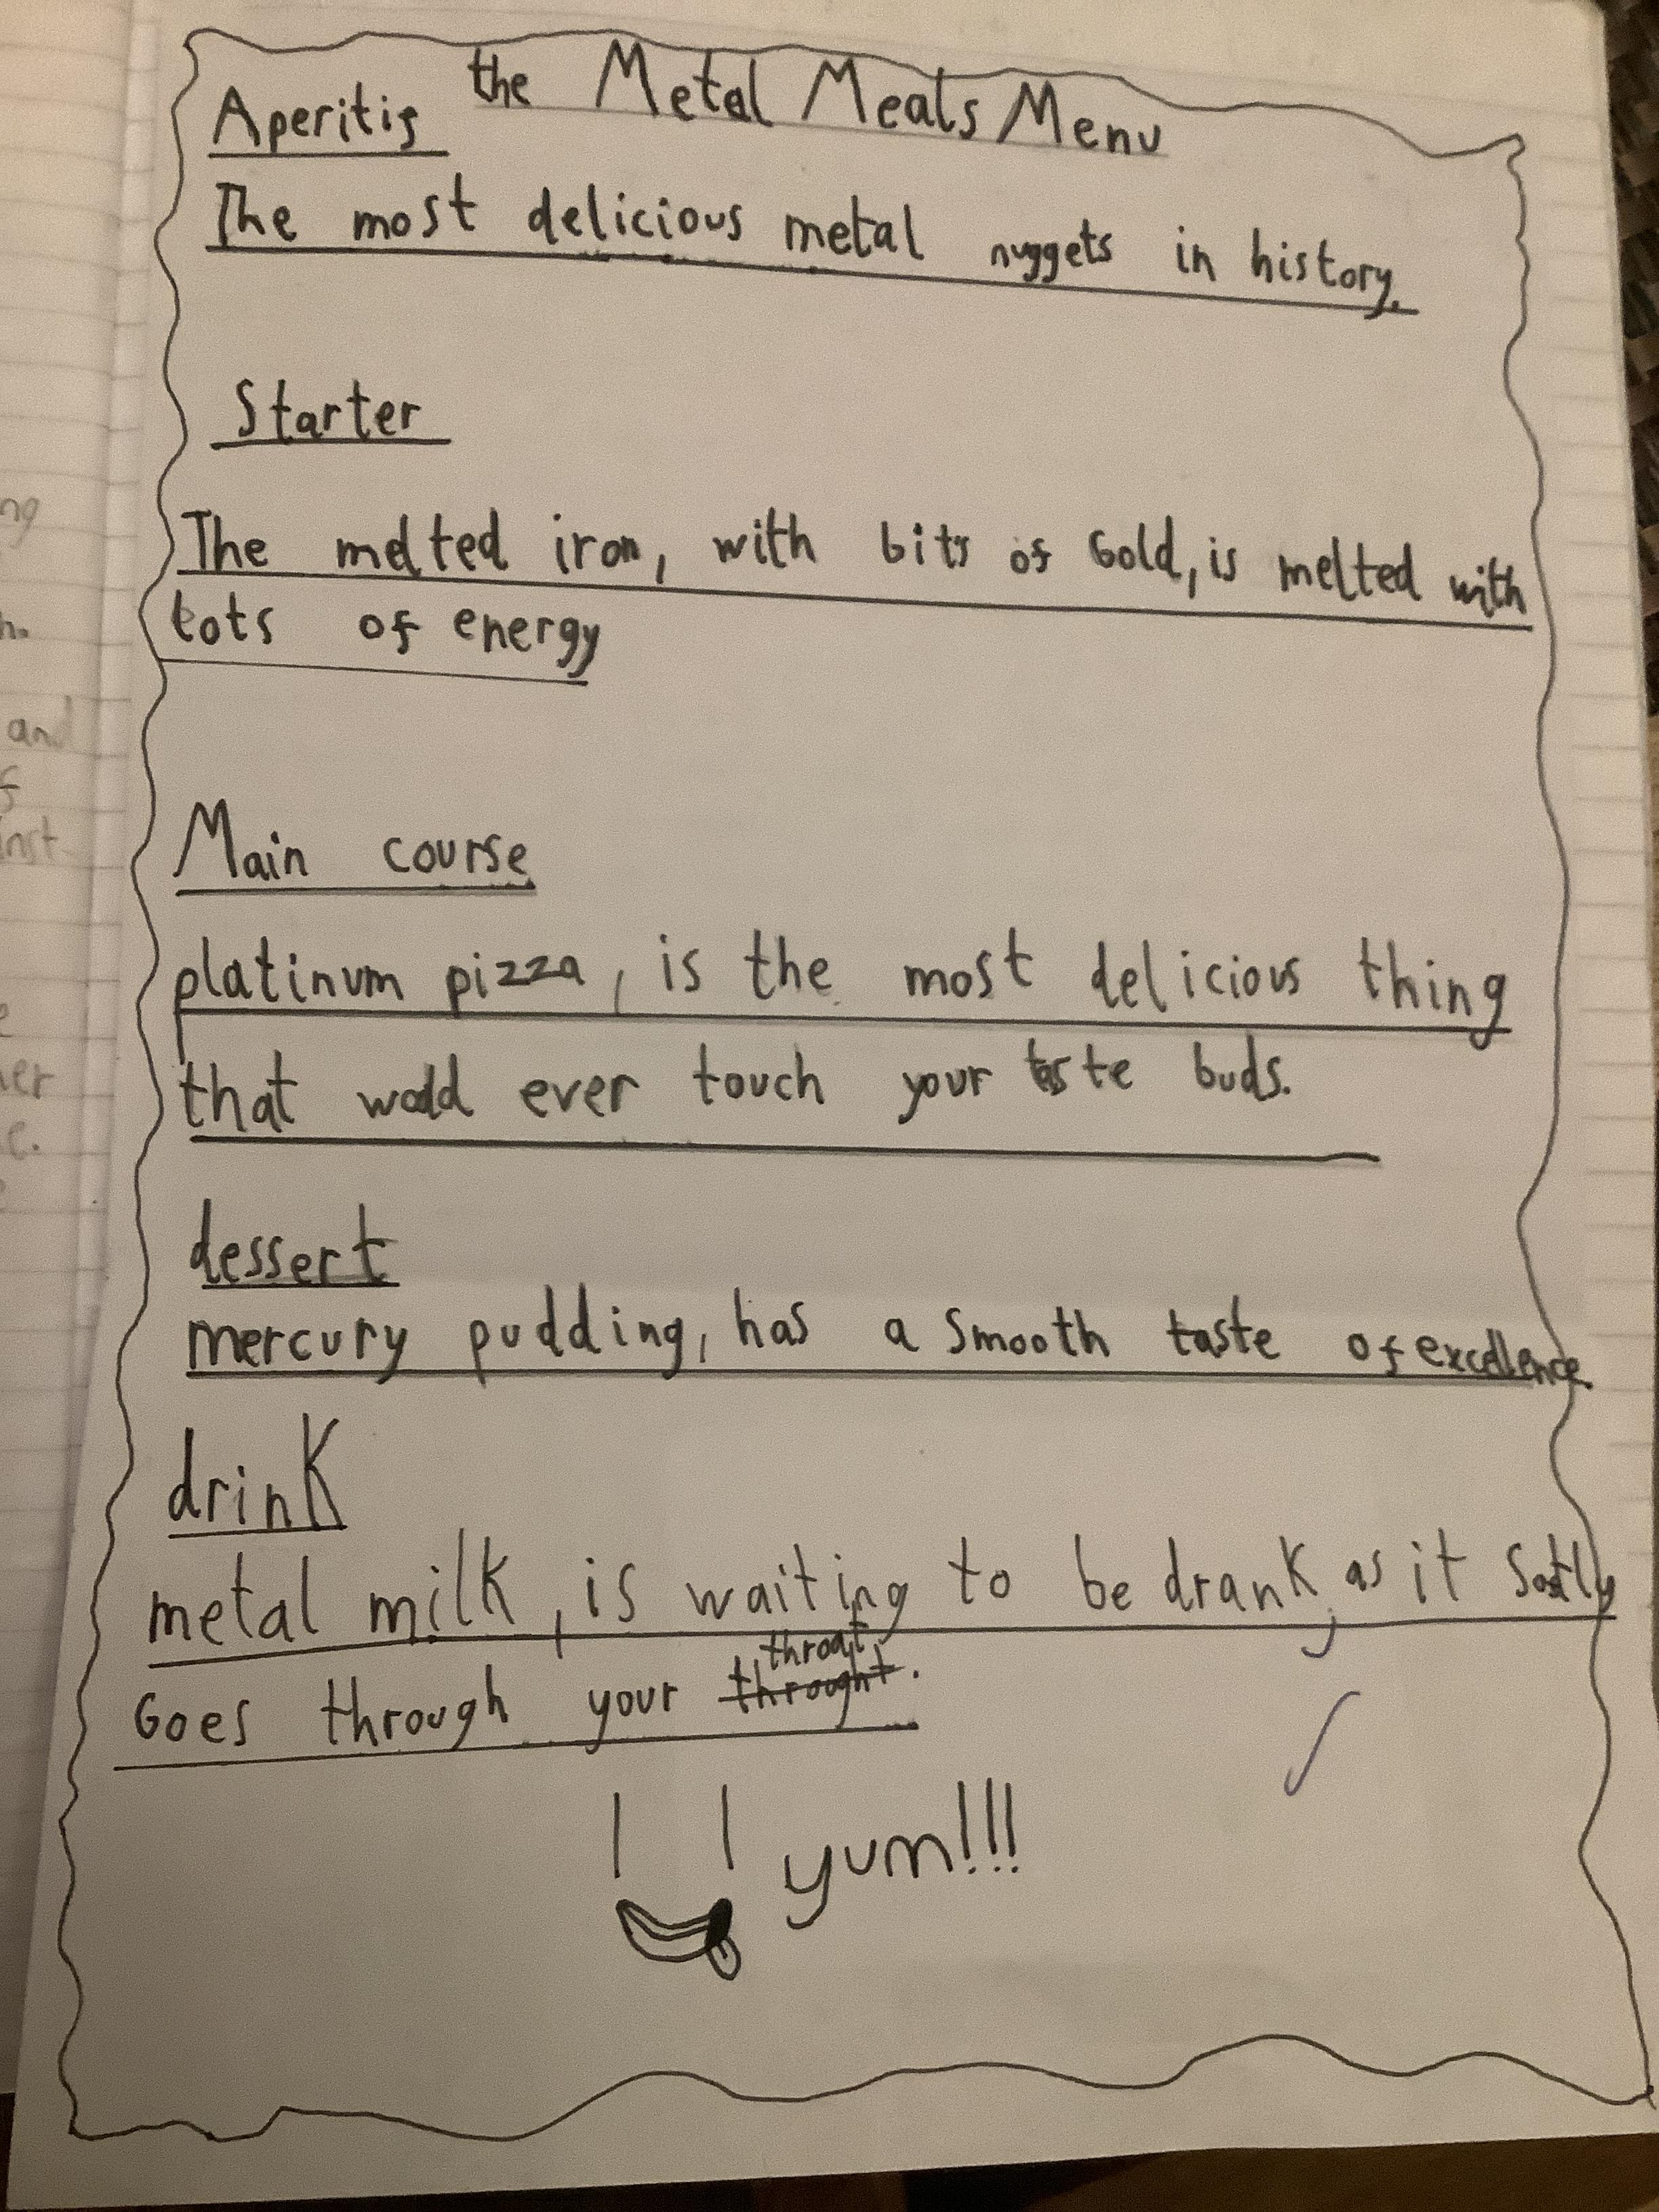 the Metal Meals Menu
Aperitif
The most delicious metal nuggets in history.
Starter
The melted iron, with bits of Gold, is melted with
lots of energy
Main course
platinum pizza, is the most delicious thing
that would ever touch your taste buds.
dessert
mercury pudding, has a smooth taste of excellence.
drink
metal milk, is waiting to be drank, as it softly
Goes through your throat.
throught
yum!!!
ng
h.
and
f
inst
e
her
e.